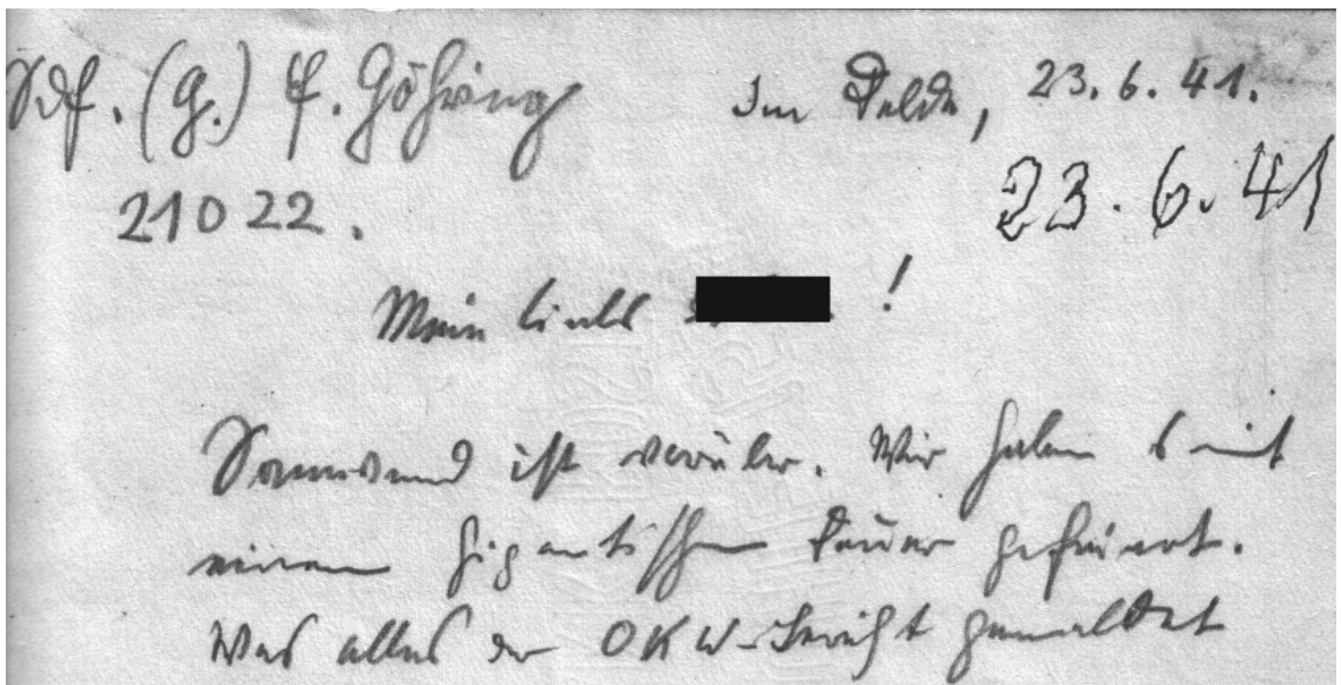 Sdf. (G.) F. Göhring Im Felde, 23.6.41.
21022. 23.6.41
Mein liebes !
Sonnwend ist vorüber. Wir haben es mit
einem gigantischen Feuer gefeiert.
Was alles der OKW-Bericht gemeldet